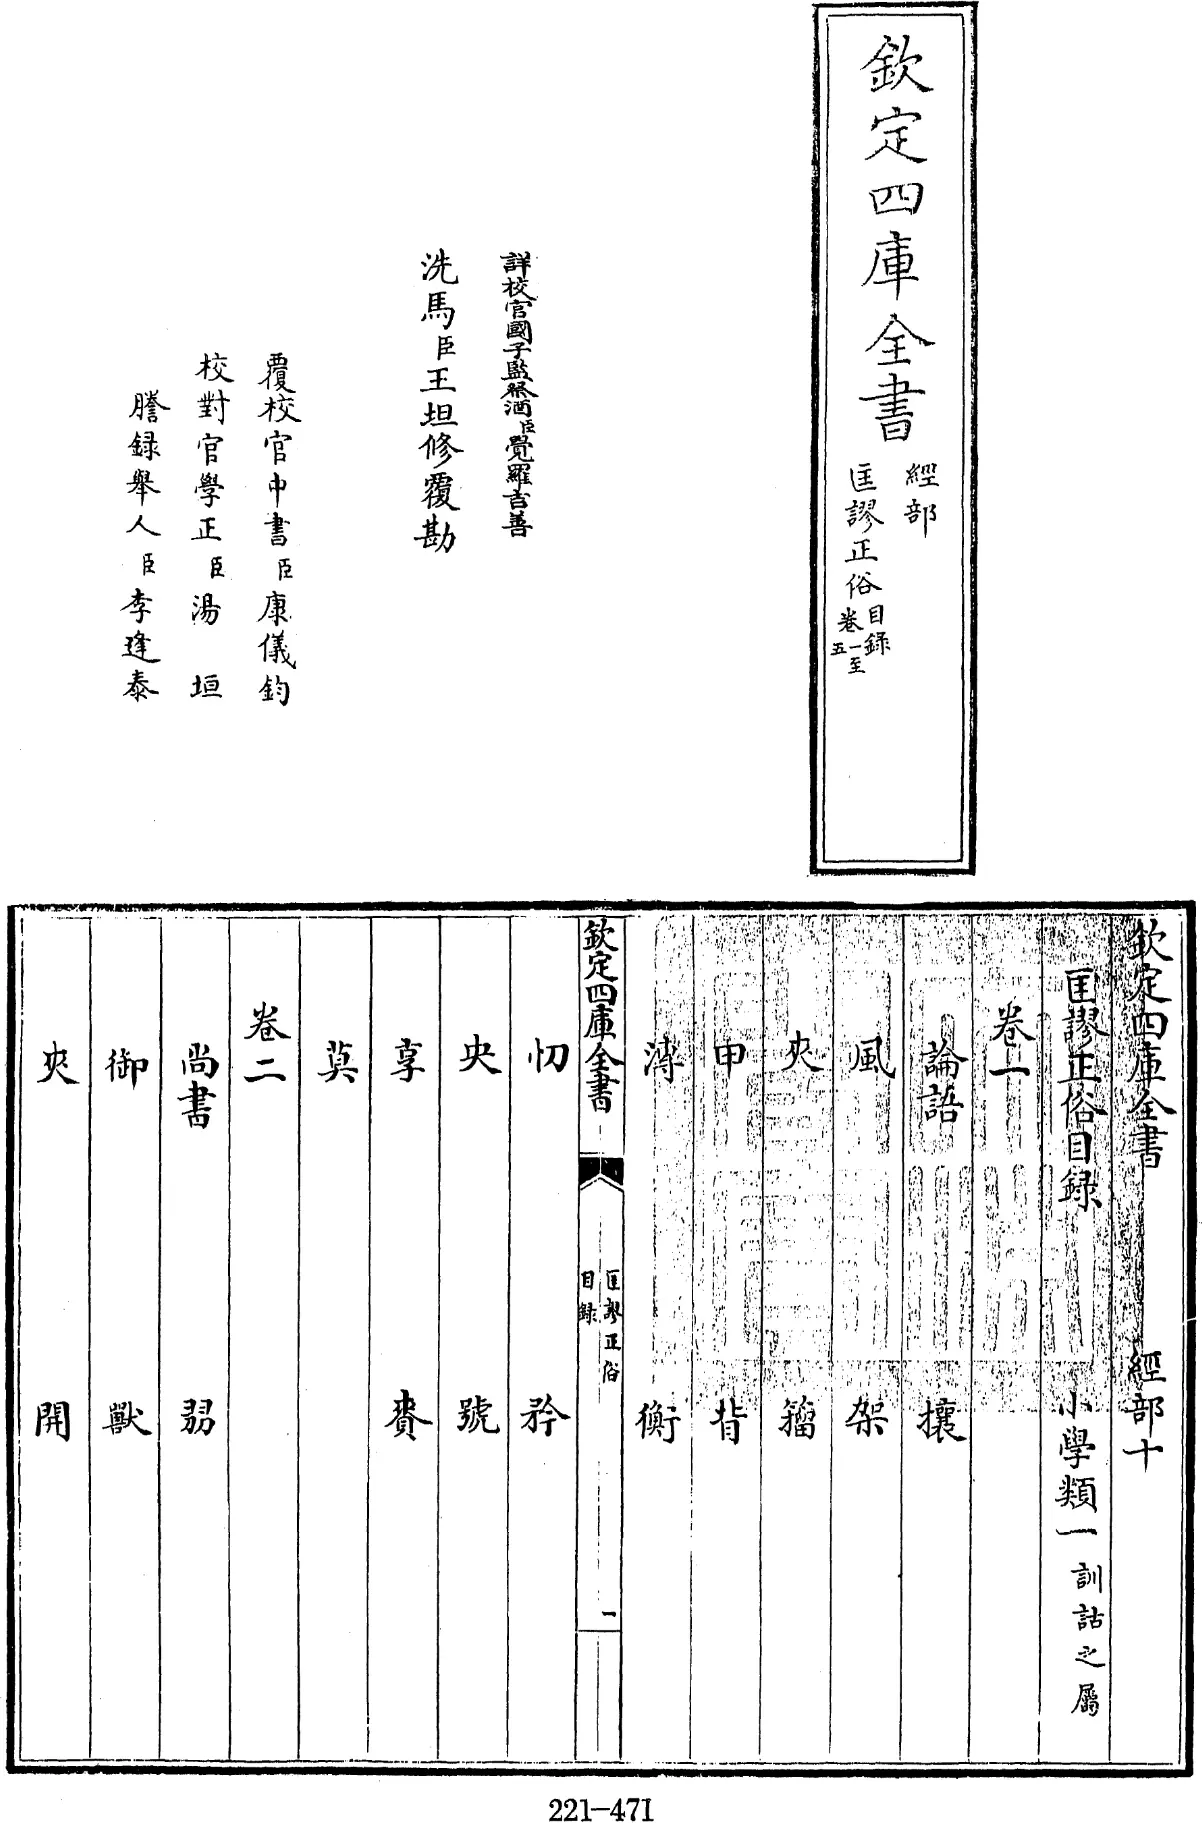 欽定四庫全書
經部
匡謬正俗目錄
卷一至
五
詳校官國子監祭酒臣覺羅吉善
洗馬臣王坦修覆勘
覆校官中書臣康儀鈞
校對官學正臣湯垣
謄録舉人臣李逢泰
欽定四庫全書 經部十
匡謬正俗目録 小學類一 訓詁之屬
卷一
論語 攘
風 架
夾 籀
甲 背
溥 衡
欽定四庫全書
匡謬正俗
目録
一
忉 矜
央 號
享 賚
莫
卷二
尚書 弱
御 獸
夾 開
221-471